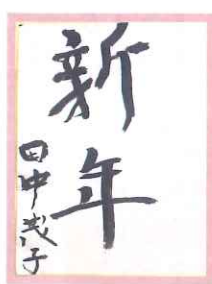 新年
田中成子